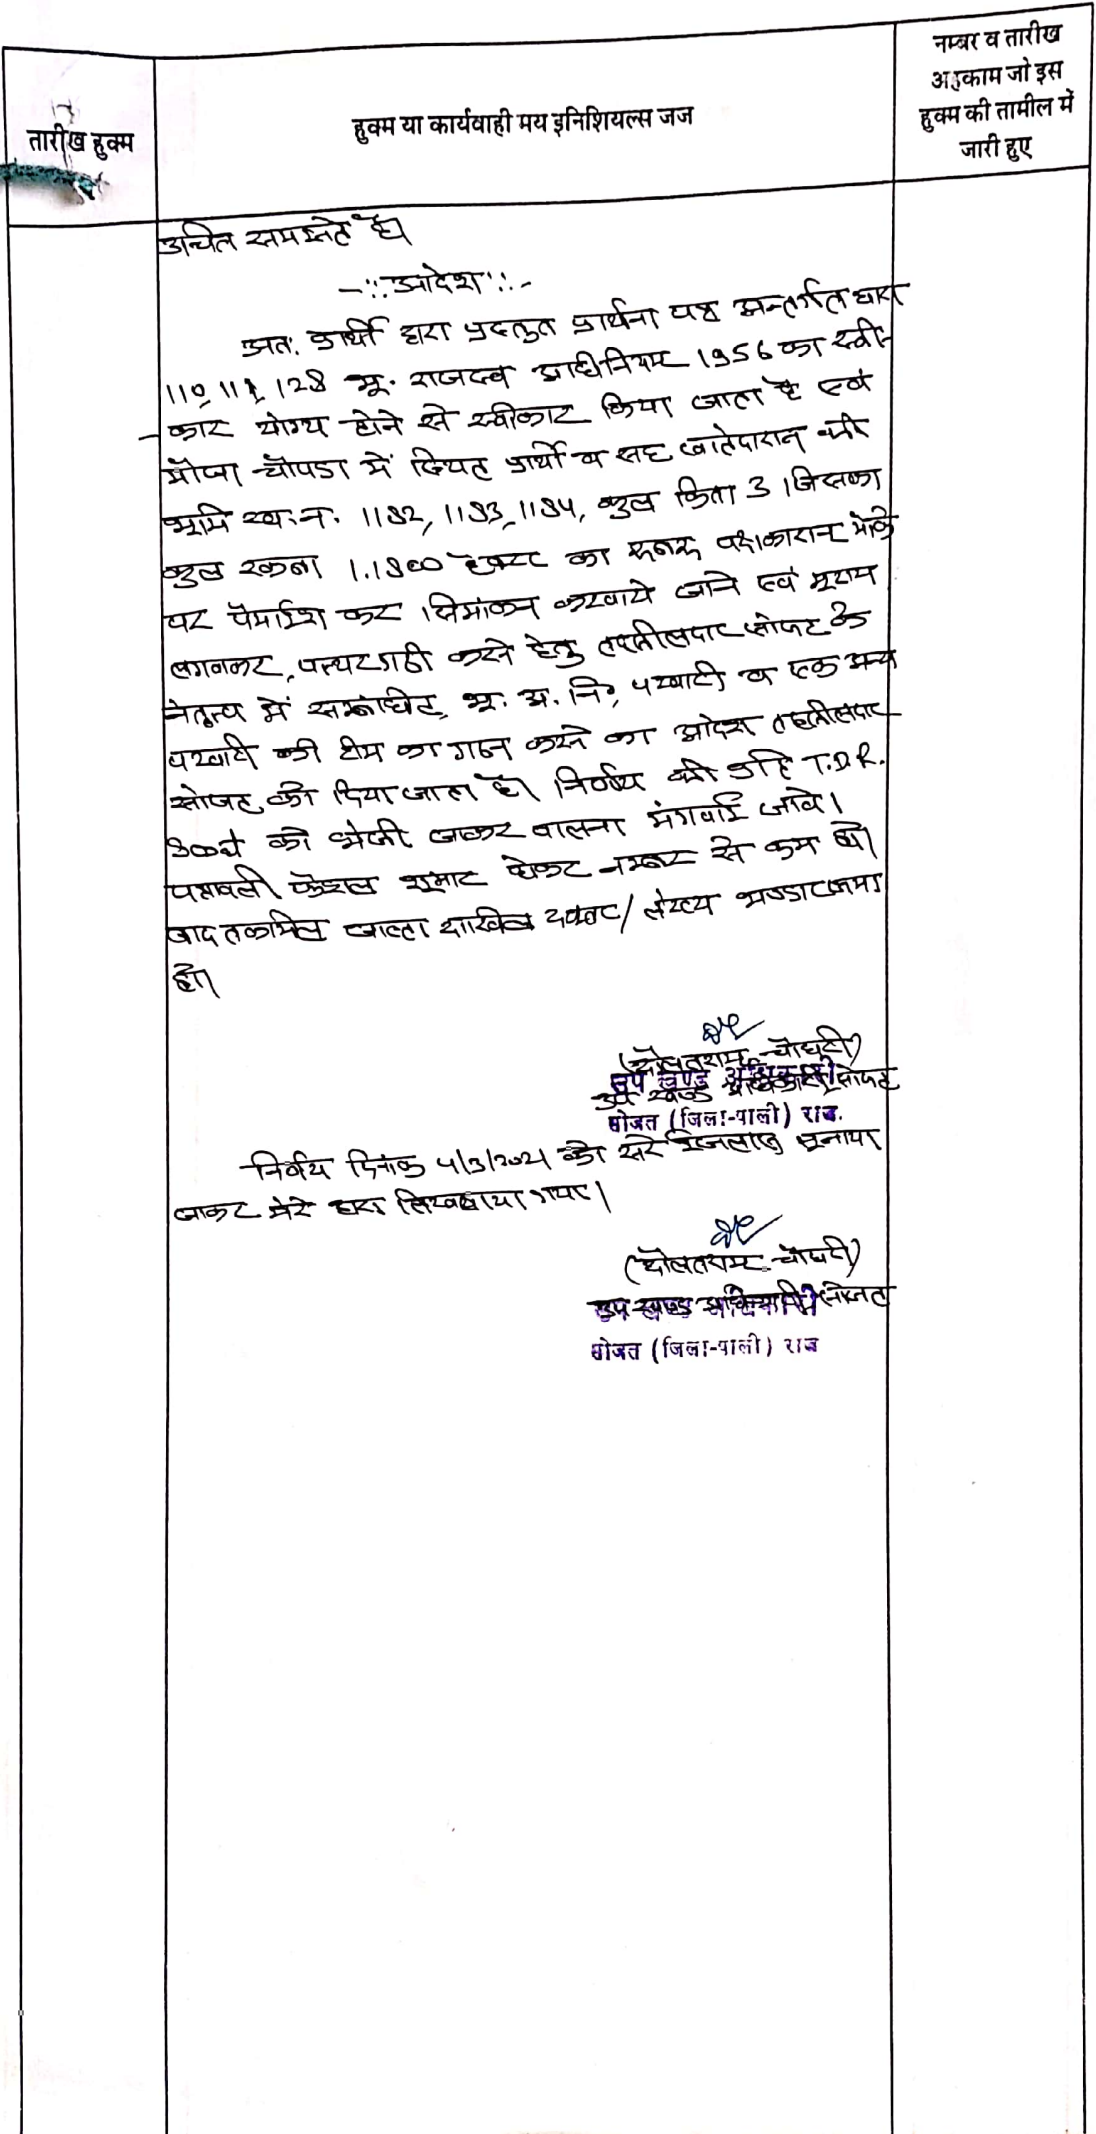 तारीख हुक्म
हुक्म या कार्यवाही मय इनिशियल्स जज
नम्बर व तारीख
अहकाम जो इस
हुक्म की तामील में
जारी हुए
उचित समझते है।
-::आदेश::-
अतः प्रार्थी द्वारा प्रस्तुत प्रार्थना पत्र अन्तर्गत धारा
110, 111, 128 भू. राजस्व अधिनियम 1956 का स्वी-
कार योग्य होने से स्वीकार किया जाता है एवं
मौजा चौपडा में स्थित प्रार्थी व सह खातेदारान की
भूमि ख.न. 1182, 1183, 1184, कुल किता 3 जिसका
कुल रकबा 1.1800 हैक्टर का रूबरू पक्षकारान मौके
पर पैमाईश कर सिमांकन करवाये जाने एवं
लगवाकर, पत्थरगढी करने हेतु तहसीलदार सोजत के
नेतृत्व में सम्बंधित, भू. अ. नि., पटवारी व एक अन्य
पटवारी की टीम का गठन करने का आदेश तहसीलदार
सोजत को दिया जाता है। निर्णय की प्रति T.D.R.
को भेजी जाकर पालना मंगवाई जावे।
पत्रावली फैसल शुमार होकर नम्बर से कम हो।
बाद तकमिल जाप्ता दाखिल दफ्तर/ लेख्य भण्डार जमा
हो।
(दौलतराम चौधरी)
उप खण्ड अधिकारी
उप खण्ड अधिकारी, सोजत
सोजत (जिला-पाली) राज.
निर्णय दिनांक 4/3/2021 को सरे इजलास सुनाया
जाकर मेरे द्वारा लिखवाया गया।
(दौलतराम चौधरी)
उप खण्ड अधिकारी सोजत
सोजत (जिला-पाली) राज